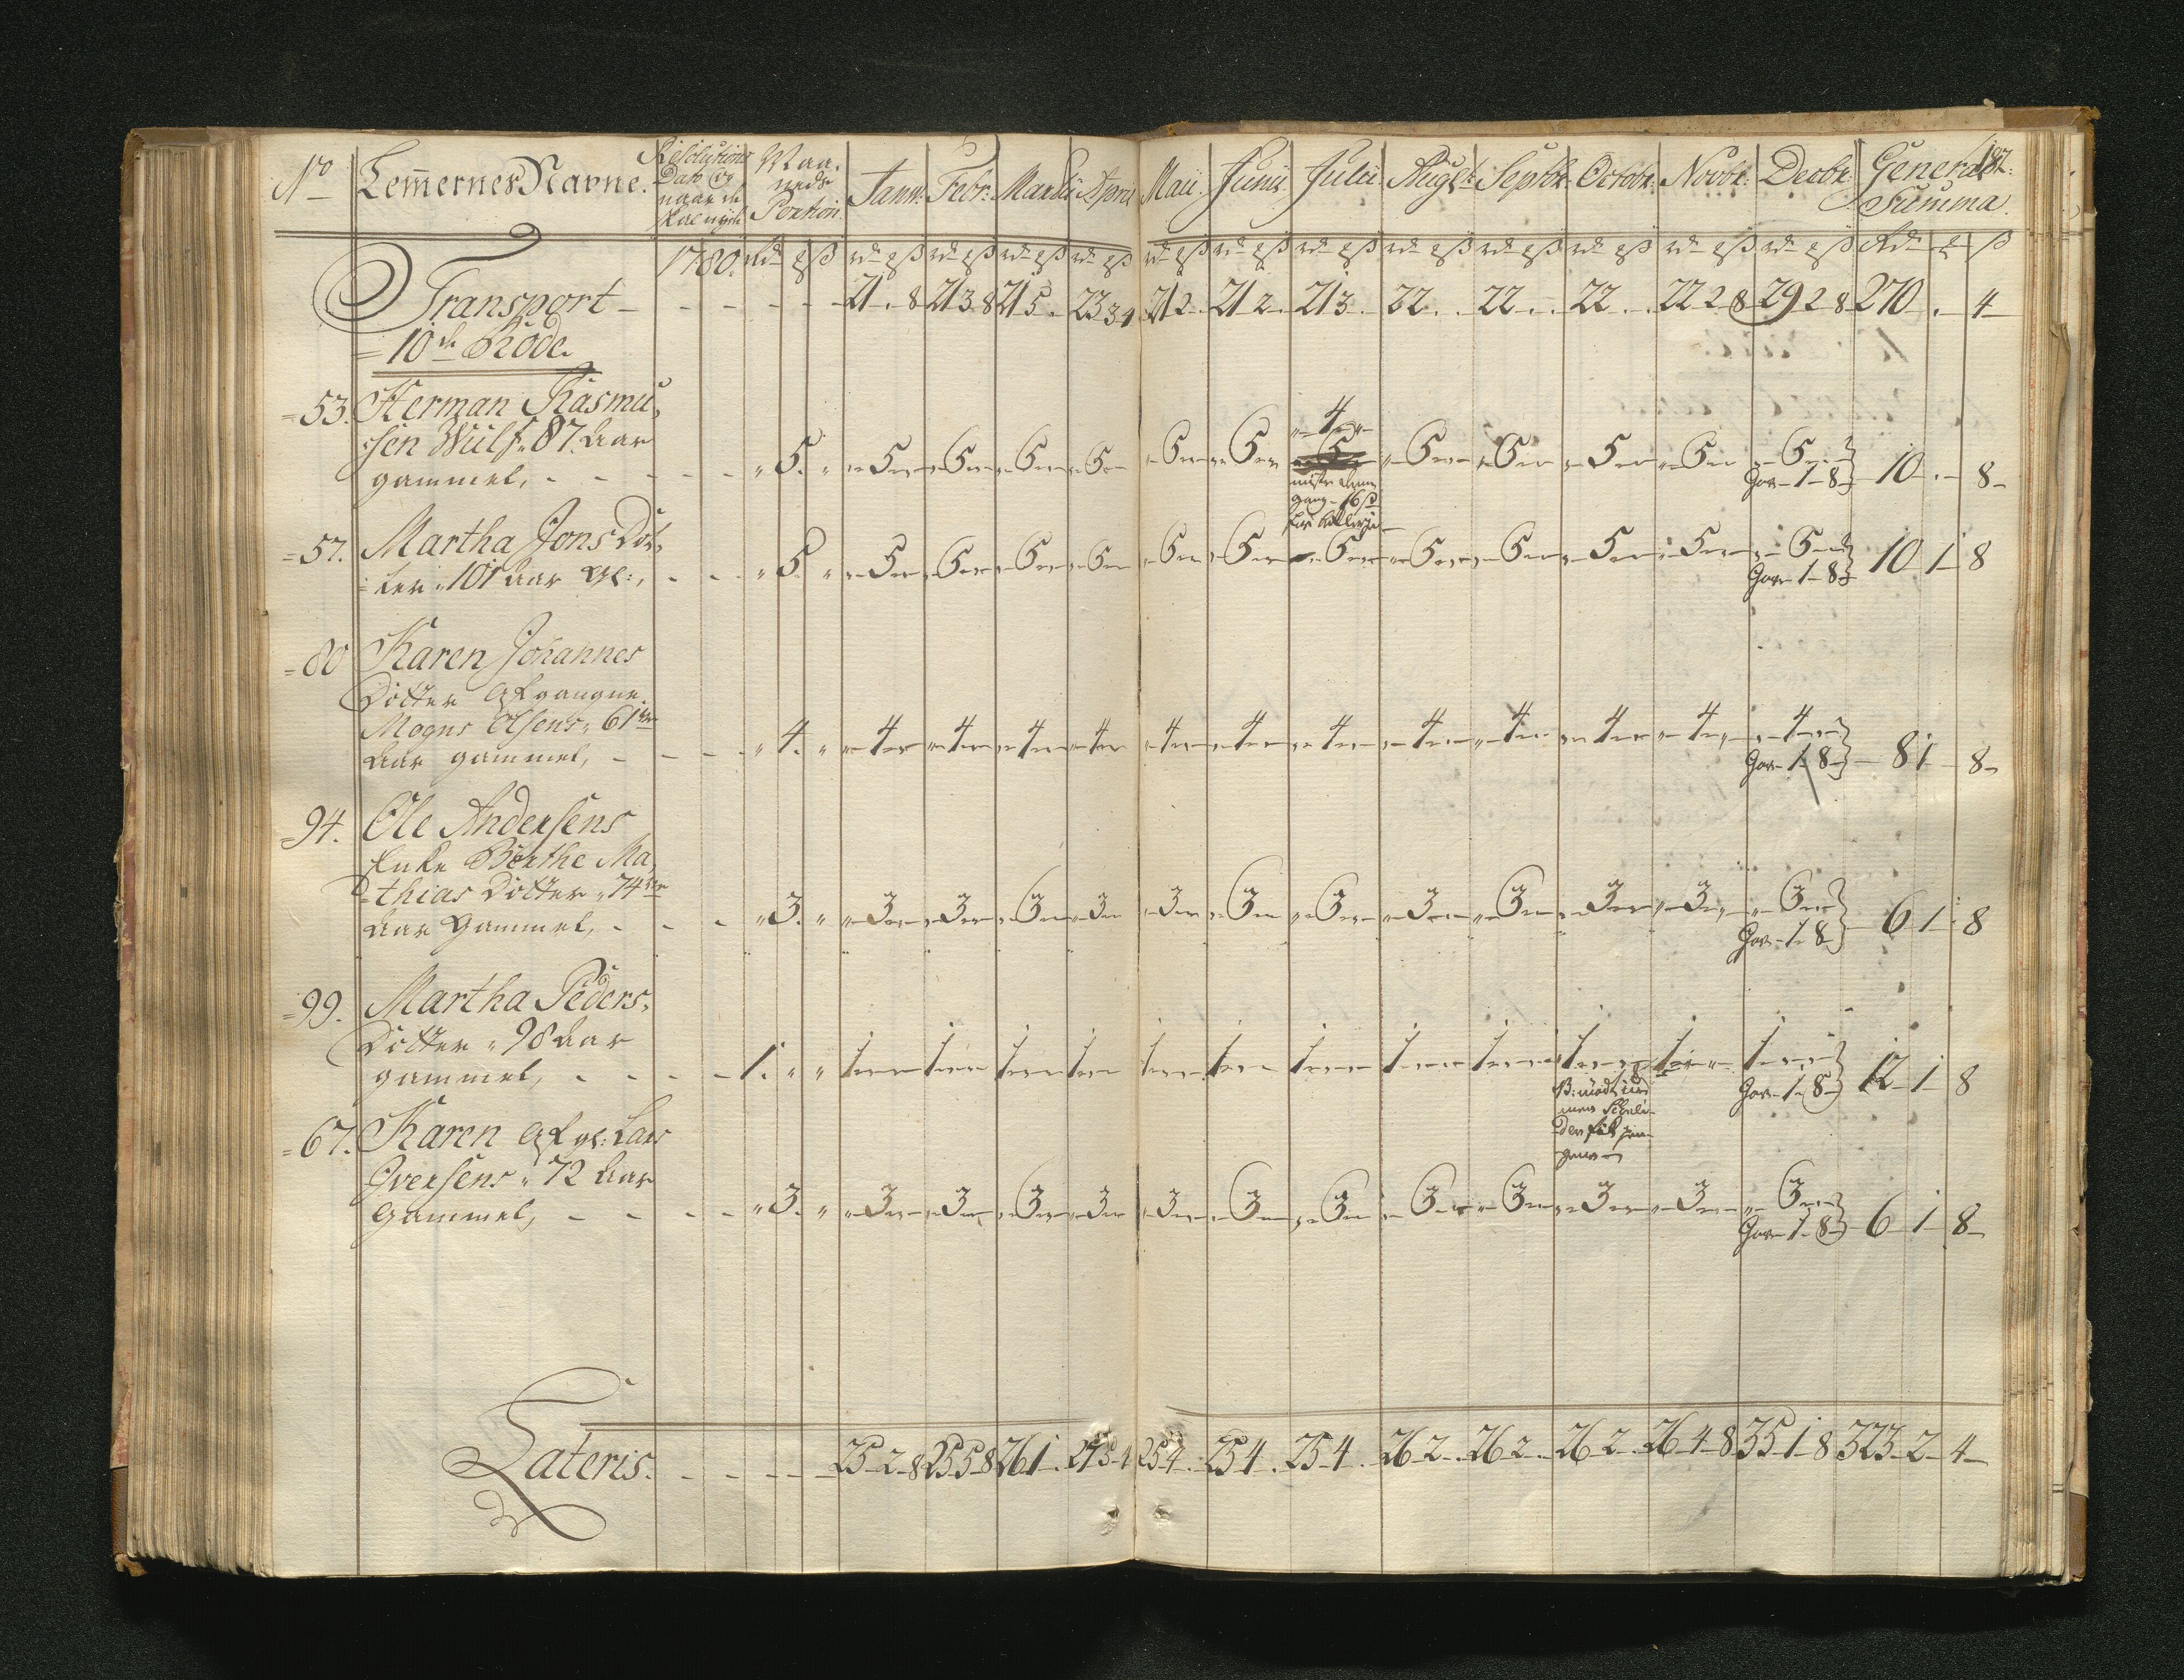 No Lem̅ernes Navne. Resolutions Dato og naar de Maa- neds Portion. Janu: Febr: Martii April Maii Junii Julii Augst: Septbr: Octobr: Novbr: Decbr: General Summa 187.
1780. rd ₰ ß rd ₰ ß rd ₰ ß rd ₰ ß rd ₰ ß rd ₰ ß rd ₰ ß rd ₰ ß rd ₰ ß rd ₰ ß rd ₰ ß rd ₰ ß rd ₰ ß Rd ₰ ß
Transport - - - - - - 21 . 8 21 3 8 21 5 . 23 3 4 21 2 . 21 2 . 21 3 . 22 . . 22 . . 22 . . 22 2 8 29 2 8 270 . 4
= 10de Rode.
= 53. Herman Rasmu,
sen Wulf " 87. Aar 4
gammel, - - - - " 5. " 5 5 5 5 5 5 5 5 5 5 5 5 10 . 8
16 ß
1 - 8
= 57. Martha Jons Dot,
= ter " 101 Aar gl:, - - " 5. " 5 5 5 5 5 5 5 5 5 5 5 5 10 1 8
1 - 8
= 80 Karen Johannes
Dotter Afgangne
Mogns Olsens " 61de
Aar gammel, - - - " 4. " 4 4 4 4 4 4 4 4 4 4 4 4 8 1 8
1 - 8
= 94. Ole Andersens
Enke Berthe Ma,
= thias Dotter " 74de
Aar Gammel, - - - " 3. " 3 3 3 3 3 3 3 3 3 3 3 3 6 1 8
1 - 8
= 99. Martha Peders,
Dotter " 98 Aar
gammel, - - - - 1. " " 1 1 1 1 1 1 1 1 1 1 1 1 12 1 8
1 - 8
= 67. Karen Afgl: Lars
Iversens " 72 Aar
Gammel, - - - - " 3. " 3 3 3 3 3 3 3 3 3 3 3 3 6 1 8
1 - 8
Lateris. - - - - - 25 2 8 25 5 8 26 1 . 27 5 4 25 4 . 25 4 . 25 4 . 26 2 . 26 2 . 26 2 . 26 4 8 35 1 8 323 2 4